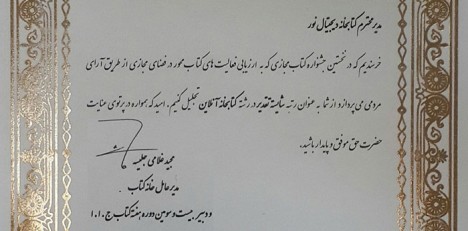 مدیر محترم کتابخانه دیجیتال نور
خرسندیم که در نخستین جشنواره کتاب مجازی که به ارزیابی فعالیت های کتاب محور در فضای مجازی از طریق آرای
مردمی می پردازد از شما به عنوان رتبه شایسته تقدیر در رشته کتابخانه آنلاین تجلیل کنیم. امید که همواره در پرتوی عنایت
حضرت حق موفق و پایدار باشید.
مجید غلامی جلیسه
مدیر عامل خانه کتاب
و دبیر بیست و سومین دوره هفته کتاب ج.ا.ا